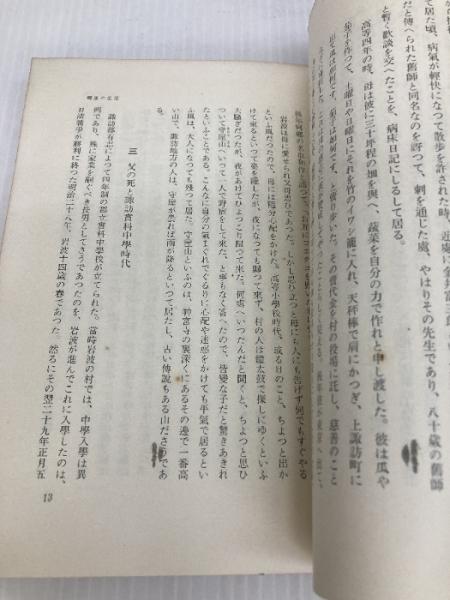 て居た頃、病氣が輕快になつて散歩を許された時、近處に金井富三郎
だと傳へられた舊師と同名なのを訝つて、刺を通じた處、やはりその先生であり、八十歳の舊師
と暫く歡談を交へたことを、病床日記にしるして居る。
高等四年の時、母は彼に三十坪程の畑を與へ、蔬菜を自分の力で作れと申し渡した。彼は瓜や
茄子を作つて、土曜日や日曜日にそれを竹のイワシ籠に入れ、天秤棒で肩にかつぎ、上諏訪町に
郷里の生活
岩波は母に愛せられ父母思ひであつた。しかし思ひ立つと母にも人にも告げず何でもすぐやる
といふ風だつたので、母は隨分心配をかけた。高等小學校時代、或る日のこと、ちよつと出か
けて來るといつて家を出たが、夜になつても歸つて來ず、村の人は鐘太鼓で探しにゆくといふ
大騷ぎだつたが、夜があけてひよつこり歸つて來た。何處へいつたんだと聞くと、ちよつと思ひ
ついて守屋山にいつて一人で野宿をして來た、と事もなく答へたので、皆變な子だと驚きあきれ
たといふことである。こんなに自分の氣まぐれでぐるりに心配や迷惑をかけても平氣で居るとい
ふ風は、大人になつても殘つて居た。守屋山といふのは、神宮寺の裏深くにあるその邊で一番高
い山で、諏訪地方の人は、守屋が曇れば雨が降るといつて居たし、古い傳説もある山ださうであ
三 父の死と諏訪實科中學時代
諏訪郡有志によつて四年制の郡立實科中學校が立てられた。當時岩波の村では、中學入學は異
例であり、殊に家業を嗣ぐべき長男としてさうであつたのを、岩波が進んでこれに入學したのは、
日清戰爭が勝利に終つた明治二十八年、岩波十四歳の春であつた。然るにその翌二十九年正月五
13